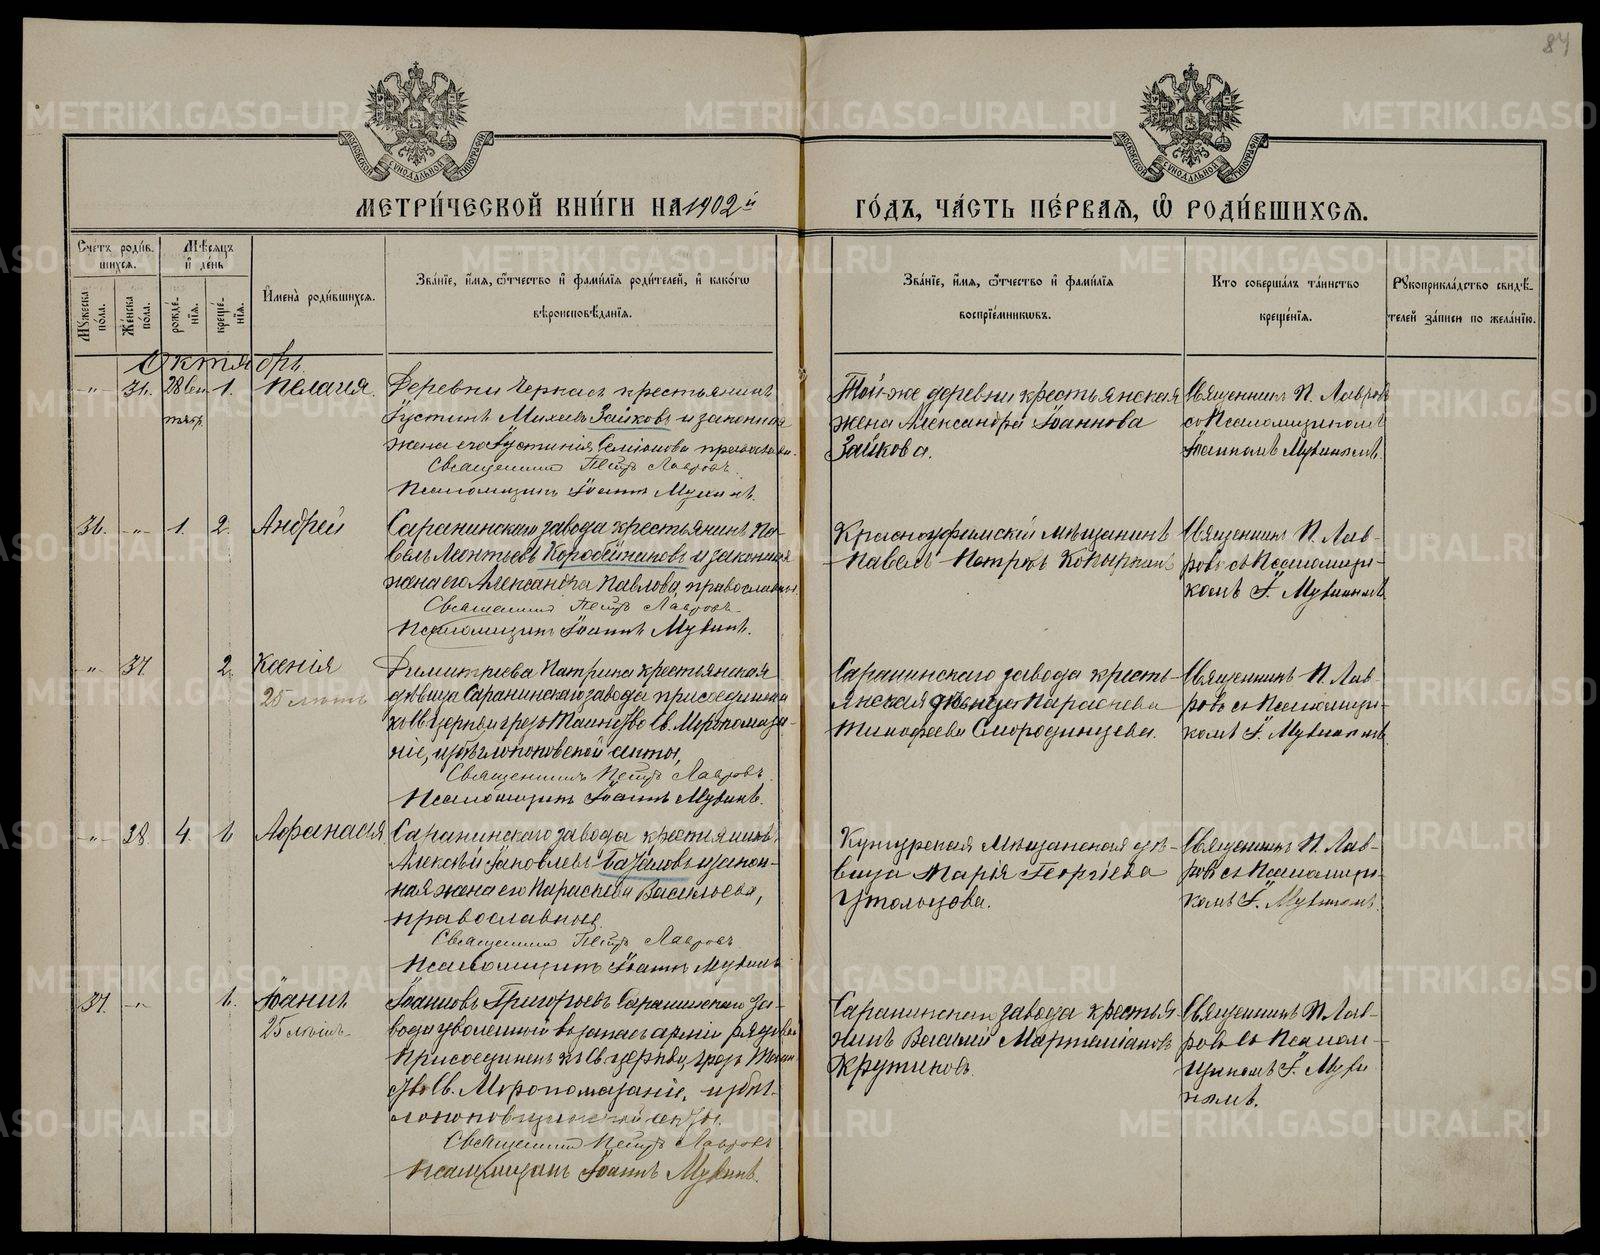 84
МЕТРИ́ЧЕСКОЙ КНИ́ГИ НА 1902й
ГО́ДЪ, ЧА́СТЬ ПЕ́РВАЯ, Ѡ҆ РОДИ́ВШИХСѦ.
Счетъ роди́вшихсѧ.
Мꙋжеска по́ла.
Же́нска по́ла.
Мѣ́сѧцъ и҆ де́нь
рожде́нїѧ.
креще́нїѧ.
И҆мена̀ роди́вшихсѧ.
Зва́нїе, и҆́мѧ, ѻ҆́тчество и҆ фами́лїѧ роди́телей, и҆ како́гѡ
вѣроисповѣ́данїѧ.
Зва́нїе, и҆́мѧ, ѻ҆́тчество и҆ фами́лїѧ
воспрїе́мникѡвъ.
Кто соверша́лъ та́инство
креще́нїѧ.
Рꙋкоприкла́дство свидѣ́телей за́писи по жела́нїю.
Октябрь
" 36. 28 Сентяб. 1. Пелагия.
Деревни Черкасъ крестьянинъ
Іустинъ Михеевъ Зайковъ и законная
жена его Іустинія Семіонова православн.
Священникъ Петръ Лавровъ.
Псаломщикъ Іоаннъ Мухинъ.
Той-же деревни крестьянская
жена Александра Іоаннова
Зайкова.
Священникъ П. Лавровъ
съ Псаломщикомъ
Іоанномъ Мухинымъ
36. " 1. 2. Андрей
Саранинскаго завода крестьянинъ Па-
велъ Леонтьевъ Коробейниковъ и законная
жена его Александра Павлова, православны.
Священникъ Петръ Лавровъ
Псаломщикъ Іоаннъ Мухинъ.
Красноуфимскій мѣщанинъ
Павелъ Петровъ Копыркинъ
Священникъ П. Лав-
ровъ съ Псаломщи-
комъ І. Мухинымъ
" 37. 2. Ксенія
25 лѣтъ
Димитріева Патрина крестьянская
дѣвица Саранинскаго завода присоединена
ко Св. церкви чрезъ Таинство Св. Мѵропомаза-
ніе, изъ бѣглопоповской секты,
Священникъ Петръ Лавровъ
Псаломщикъ Іоаннъ Мухинъ.
Саранинскаго завода кресть-
янская дѣвица Параскева
Тимофеева Смородинцева.
Священникъ П. Лав-
ровъ съ Псаломщи-
комъ І. Мухинымъ
" 38. 4. 6 Афанасія
Саранинскаго завода крестьянинъ
Алексѣй Іаковлевъ Базановъ и закон-
ная жена его Параскева Васильева,
православные
Священникъ Петръ Лавровъ
Псаломщикъ Іоаннъ Мухинъ
Кунгурская мѣщанская дѣ-
вица Марія Георгіева
Утольцова.
Священникъ П. Лав-
ровъ съ Псаломщи-
комъ І. Мухинымъ.
37. " 6. Іоаннъ
25 лѣтъ
Іоанновъ Григорьевъ Саранинскаго за-
вода уволенный въ запасъ арміи рядовой
Присоединенъ къ Св. церкви, чрезъ Таин-
ство Св. Мѵропомазаніе, изъ бѣг-
лопоповщинской секты.
Священникъ Петръ Лавровъ
Псаломщикъ Іоаннъ Мухинъ.
Саранинскаго завода крестья-
нинъ Василій Мартеміановъ
Крутиковъ.
Священникъ П. Лав-
ровъ съ Псалом-
щикомъ І. Мухи-
нымъ.
METRIKI.GASO-URAL.RU